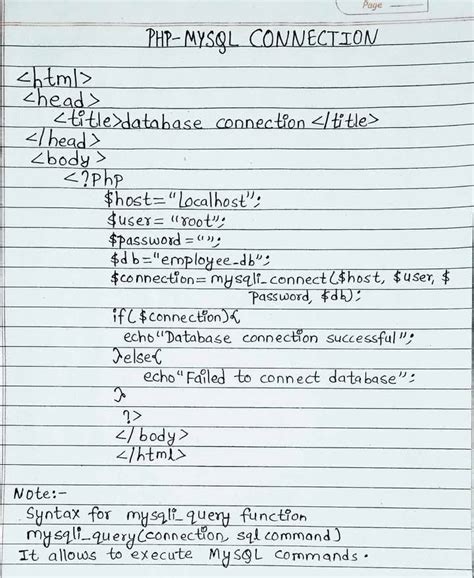 Page
PHP-MYSQL CONNECTION
<html>
<head>
<title>database connection </title>
</head>
<body>
<?Php
$host= "Localhost";
$user= "root";
$password = "";
$db="employee_db";
$connection= mysqli_connect($host, $user, $
Password, $db);
if($connection){
echo"Database connection successful";
}else{
echo"Failed to connect database";
}
?>
</body>
</html>
Note:-
Syntax for mysqli_query function
mysqli_query(connection, sql command)
It allows to execute MySQL commands.